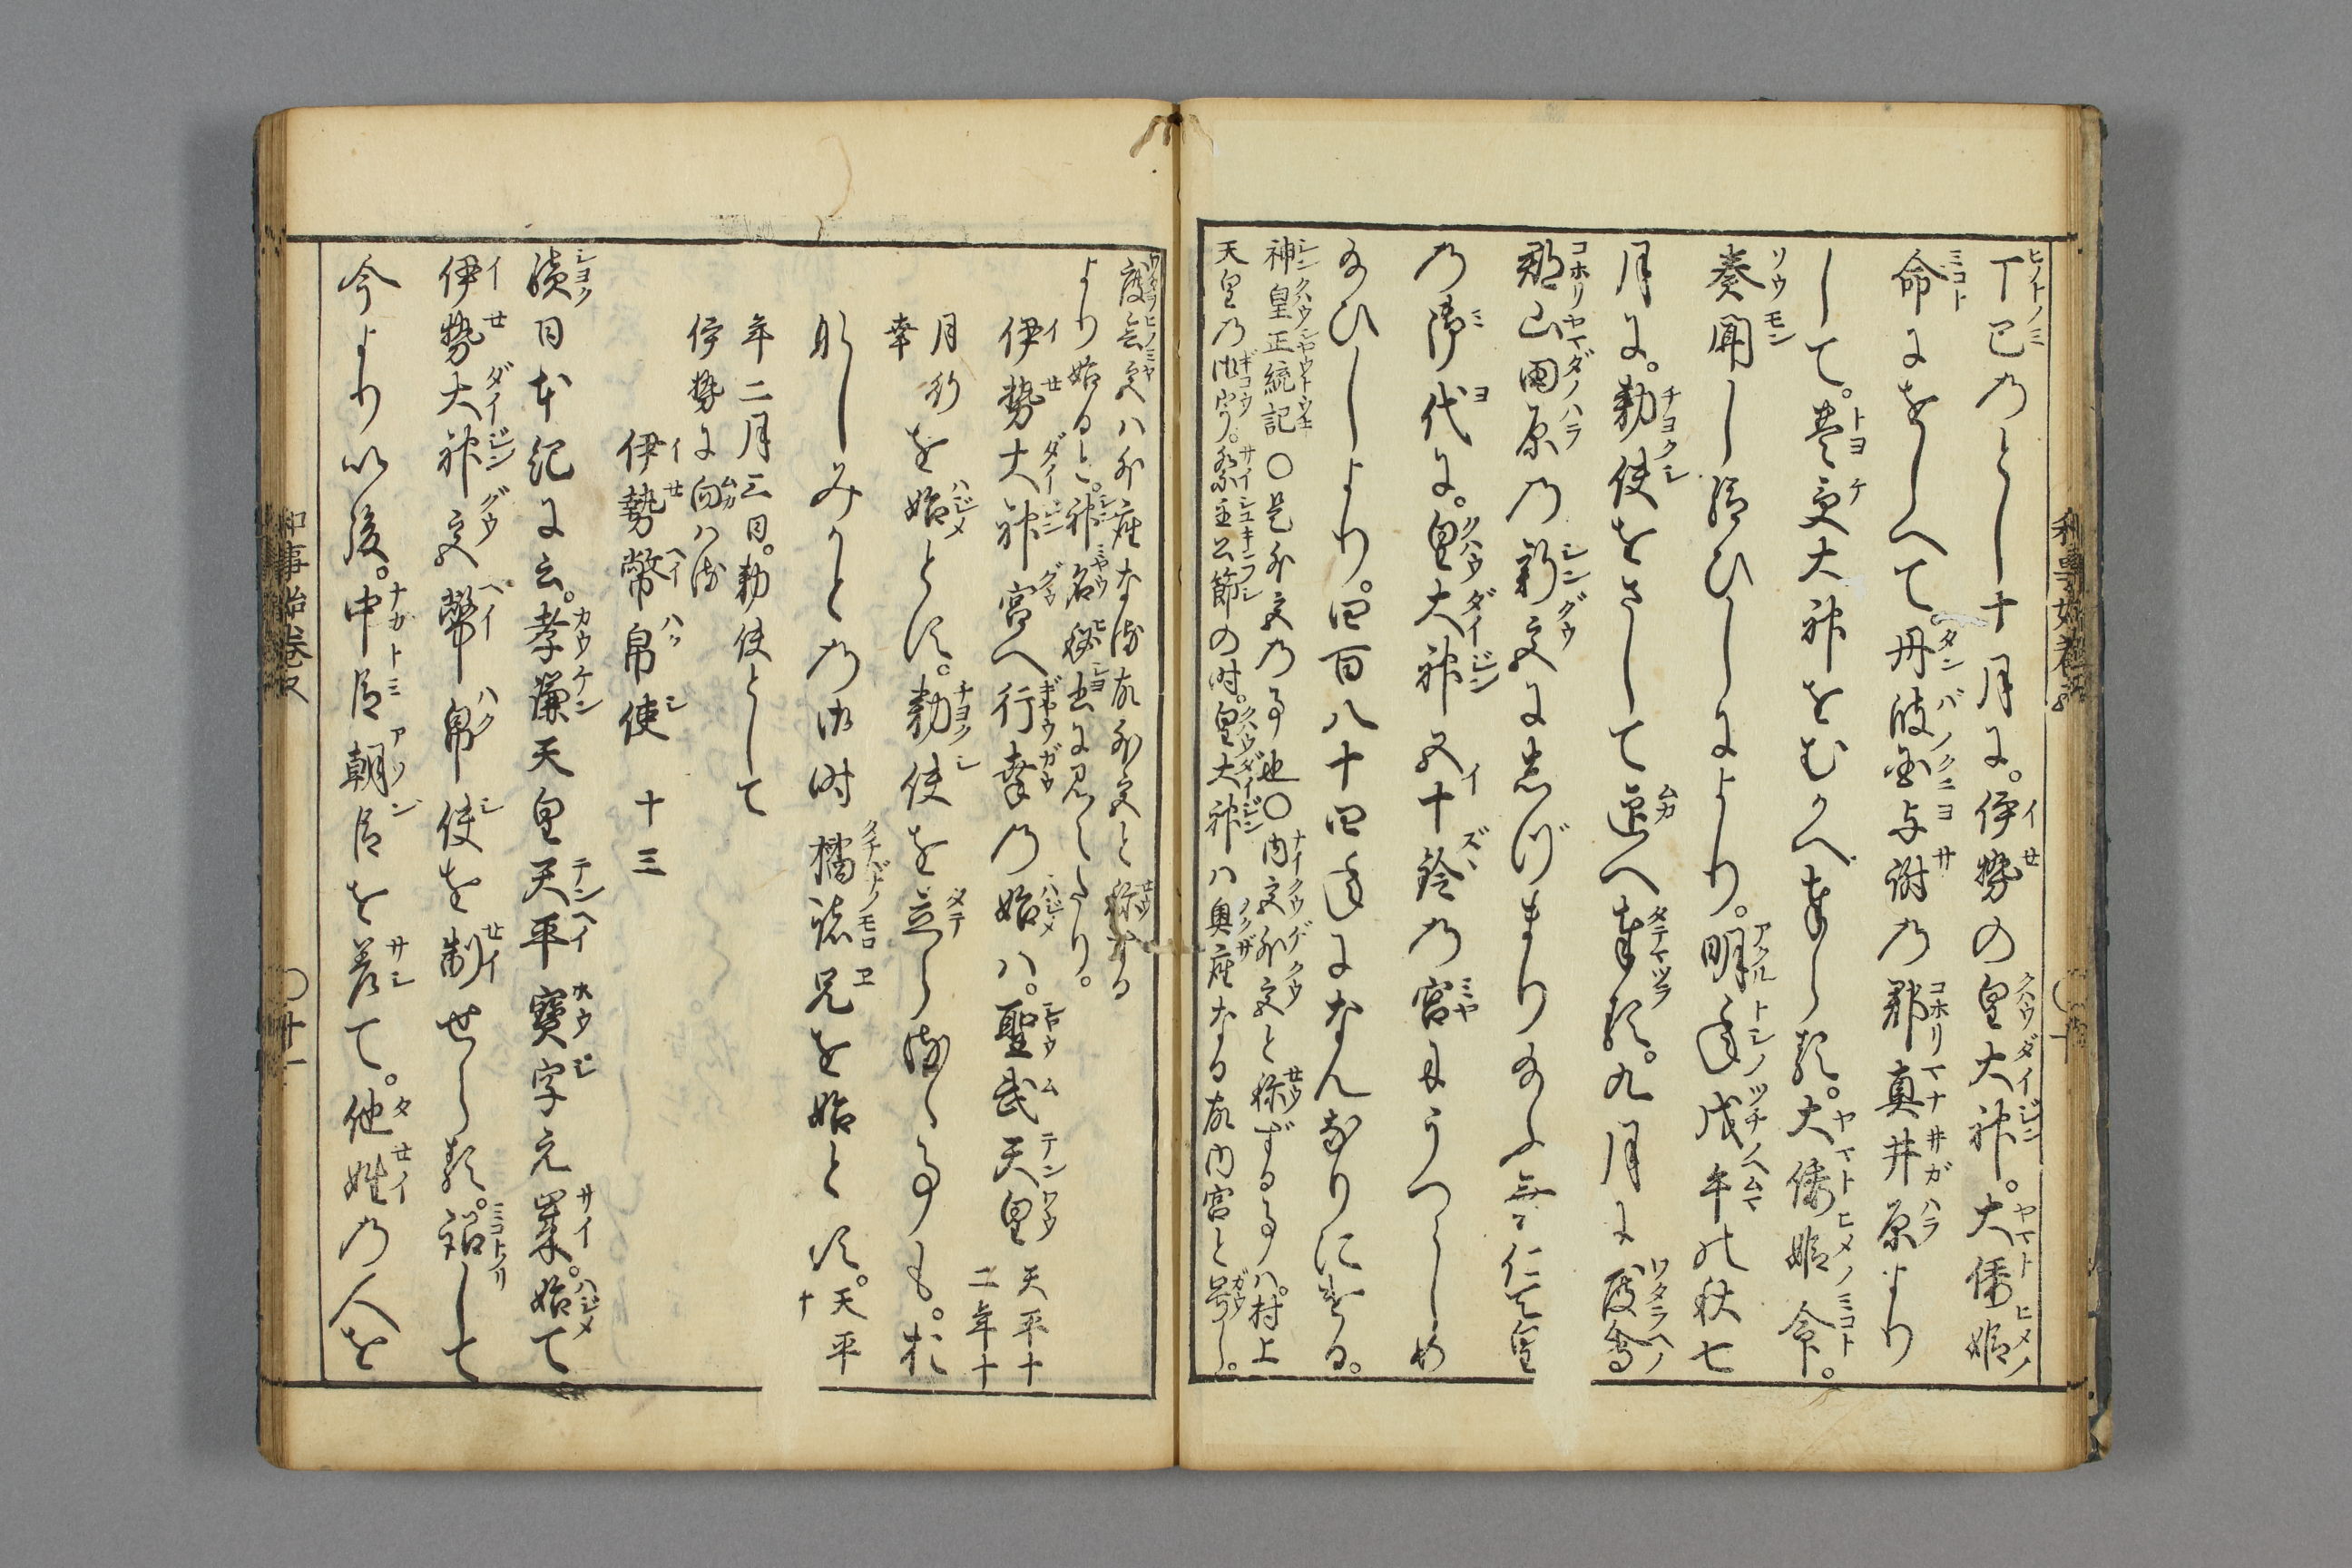 丁巳のとし十月に。伊勢の皇大神。大倭姫
命にをしへて。丹波国与謝の郡真井原より
して。豊受大神をむかへ奉らる。大倭姫命。
奏聞し給ひしによりて。明年戊午の秋七
月に。勅使をさして迎へ奉る。九月に度会
郡山田原の新宮にしづまり給ふ垂仁天皇
の御代に。皇大神五十鈴の宮にうつらしめ
給ひしより。四百八十四年になんなりにける。
神皇正統記〇是外宮の事也〇内宮外宮と称ずる事ハ。村上
天皇の御宇。祭主公節の時。皇大神ハ奥座なる故内宮と号し。
度会宮ハ外座なる故外宮と称する
より始ると。神名秘書に見へたり。
伊勢大神宮へ行幸の始ハ。聖武天皇天平十
二年十
月行
幸を始とす。勅使を立らるゝ事も。お
なしみかとの御時橘諸兄を始とす。天平
十
年二月三日。勅使として
伊勢に向ハる
伊勢幣帛使 十三
続日本紀に云。孝謙天皇天平宝字元年。始て
伊勢大神宮幣帛使を制せらる。詔して
今より以後。中臣朝臣を差て。他姓の人を
和事始巻之
〇廿一